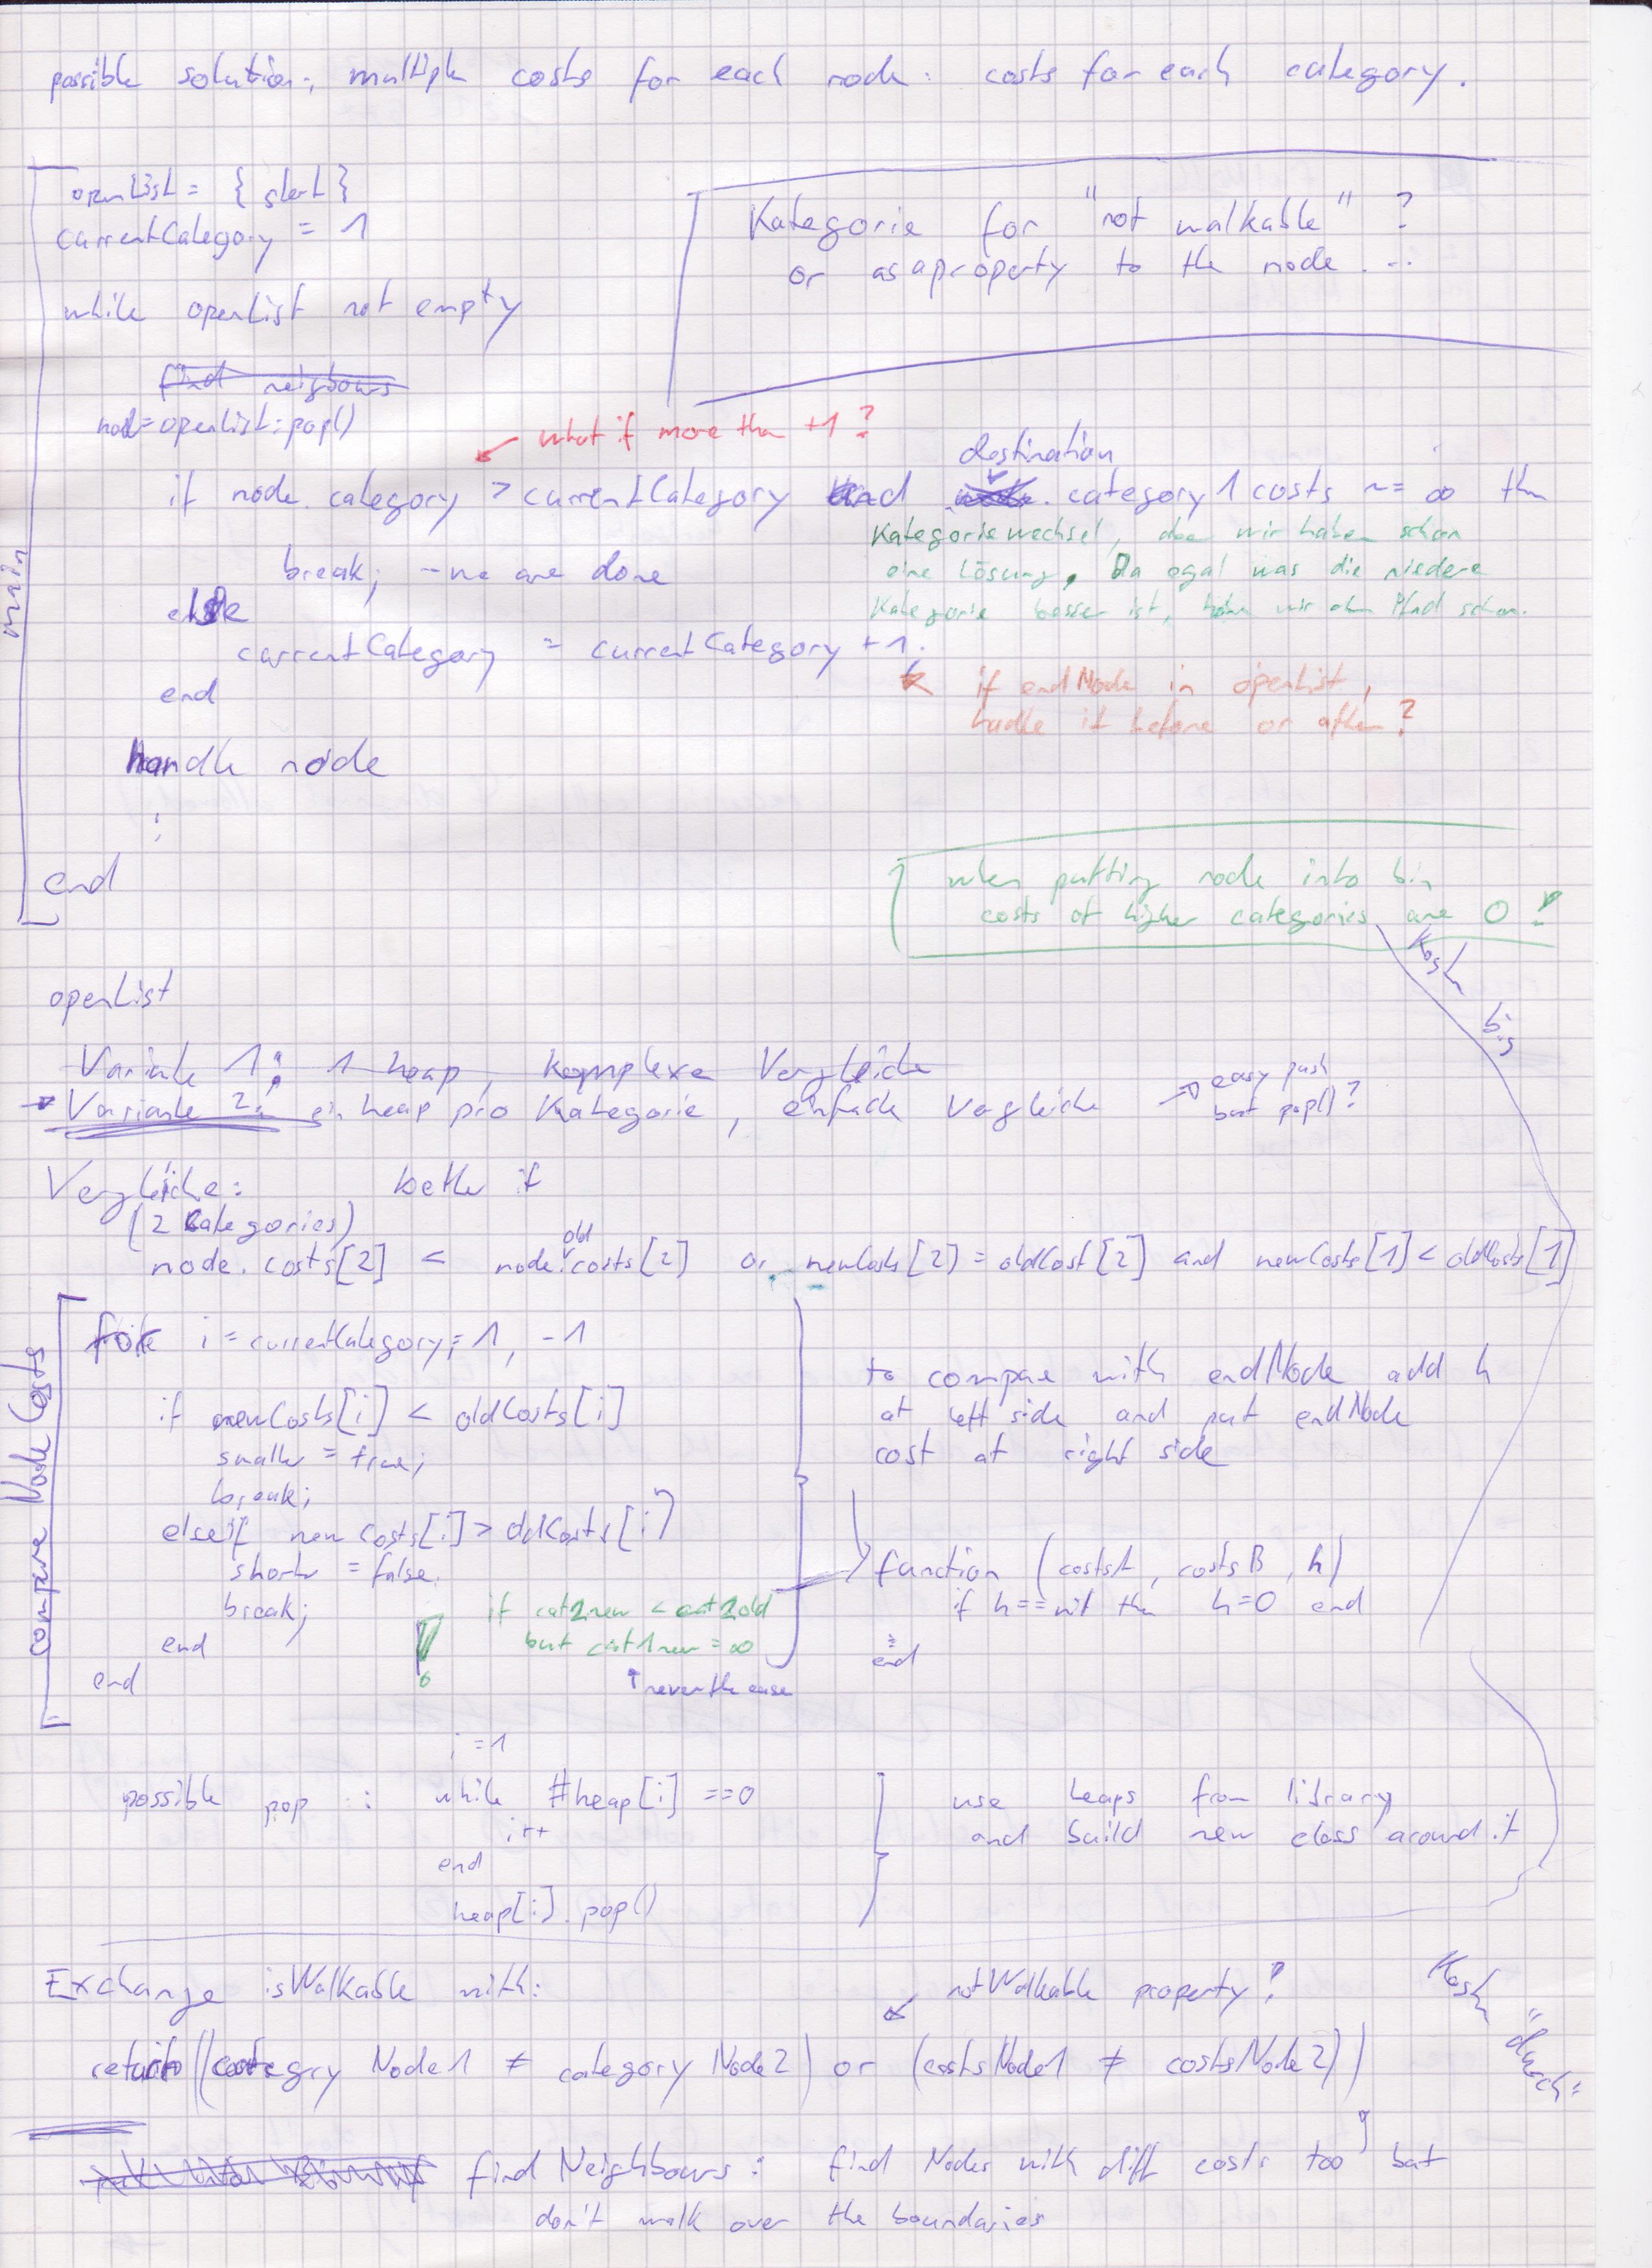 possible solution: multiple costs for each node: costs for each category.
openList = { start }
currentCategory = 1
while openList not empty
find neigbours
node=openList:pop()
Kategorie for "not walkable" ?
or as a property to the node ...
what if more than +1 ?
destination
if node.category > currentCategory and category 1 costs ~= ∞ then
break; - we are done
Kategoriewechsel, aber wir haben schon
eine Lösung. Da egal was die niedere
Kategorie besser ist, haben wir den Pfad schon.
else
currentCategory = currentCategory + 1;
end
if endNode in openList,
handle it before or after ?
handle node
:
end
main
when putting node into bin
costs of higher categories are 0 !
openList
Variante 1: 1 heap, komplexe Vergleiche
→ Variante 2: ein heap pro Kategorie, einfache Vergleiche
→ easy push
but pop()?
bis
Vergleiche: better if
(2 Categories)
old
node.costs[2] < node.costs[2] or newCosts[2] = oldCost[2] and newCosts[1] < oldCosts[1]
compare Node Costs
for i = currentCategory; 1, -1
if newCosts[i] < oldCosts[i]
smaller = true;
break;
elseif newCosts[i] > oldCosts[i]
shorter = false.
break;
end
end
if cat2new < cat2old
but cat1new = ∞
↑ never the case
to compare with endNode add h
at left side and put endNode
cost at right side
function (costsA, costsB, h)
if h==nil then h=0 end
:
end
i = 1
possible pop : while #heap[i] ==0
i++
end
heap[i].pop()
use heaps from library
and build new class around it
Exchange isWalkable with:
notWalkable property?
return ((category Node1 ≠ category Node2) or (costsNode1 ≠ costsNode2))
find Neighbours: find Nodes with diff costs too, but
don't walk over the boundaries